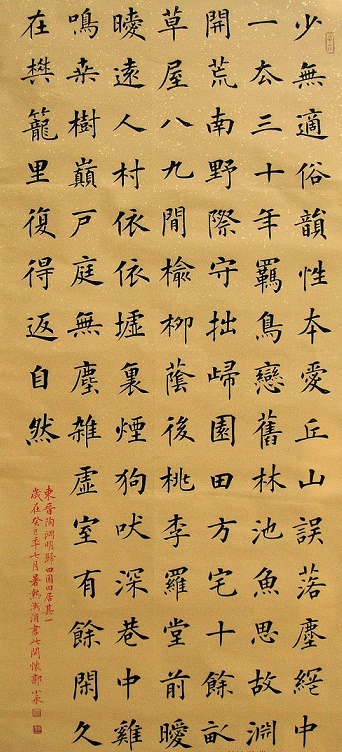 少無適俗韻性本愛丘山誤落塵網中
一去三十年羈鳥戀舊林池魚思故淵
開荒南野際守拙歸園田方宅十餘畝
草屋八九間榆柳蔭後桃李羅堂前曖
曖遠人村依依墟裏煙狗吠深巷中雞
鳴桑樹巔戶庭無塵雜虛室有餘閑久
在樊籠里復得返自然
東晉陶淵明歸田園田居其一
歲在癸巳年七月暑熱